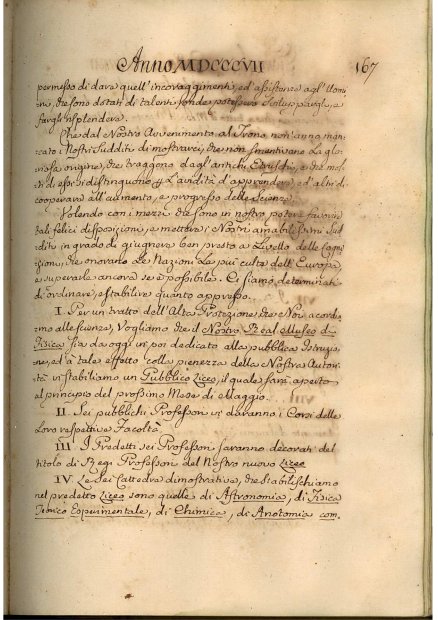 Anno MDCCCVII
167
permesso di dare quell'incoraggimenti, ed assistenze agl'Uomi-
ni, che sono dotati di talenti, onde potessero svilupparsi, e
fargli risplendere.
Che dal Nostro Avvenimento al Trono non anno man-
cato i Nostri Sudditi di mostrarci, che non smentivano La glo-
riosa origine, che traggono dagl'antichi Etruschi, e che mol-
ti di essi si distinguono p. L'avidità d'apprendere ed altri di
cooperare all'aumento, e progresso delle Scienze.
Volendo con i mezzi che sono in nostro potere favorire
tali felici disposizioni, e mettere i Nostri amabilissimi Sud-
diti in grado di giugnere ben presto a Livello delle Cogni-
zioni, che onorano Le Nazioni Le più culte dell'Europa,
e superarle ancora se è possibile. Ci siamo determinati
di ordinare, e stabilire quanto appresso.
I. Per un tratto dell'Alta Protezione, che Noi accordia-
mo alle scienze, Vogliamo che il Nostro Real Museo di
Fisica sia da oggi in poi dedicato alla pubblica Istruzio-
ne, ed a tale effetto colla pienezza della Nostra Autori-
tà vi stabiliamo un Pubblico Liceo, il quale sarà aperto
al principio del prossimo Mese di Maggio.
II. Sei pubblichi Professori vi daranno i Corsi delle
Loro respettive Facoltà.
III. I Predetti sei Professori saranno decorati del
titolo di Regi Professori del Nostro nuovo Liceo
IV. Le Sei Cattedre dimostrative, che stabilischiamo
nel predetto Liceo sono quelle di Astronomia, di Fisica
Teorico Esperimentale, di Chimica, di Anotomia com-